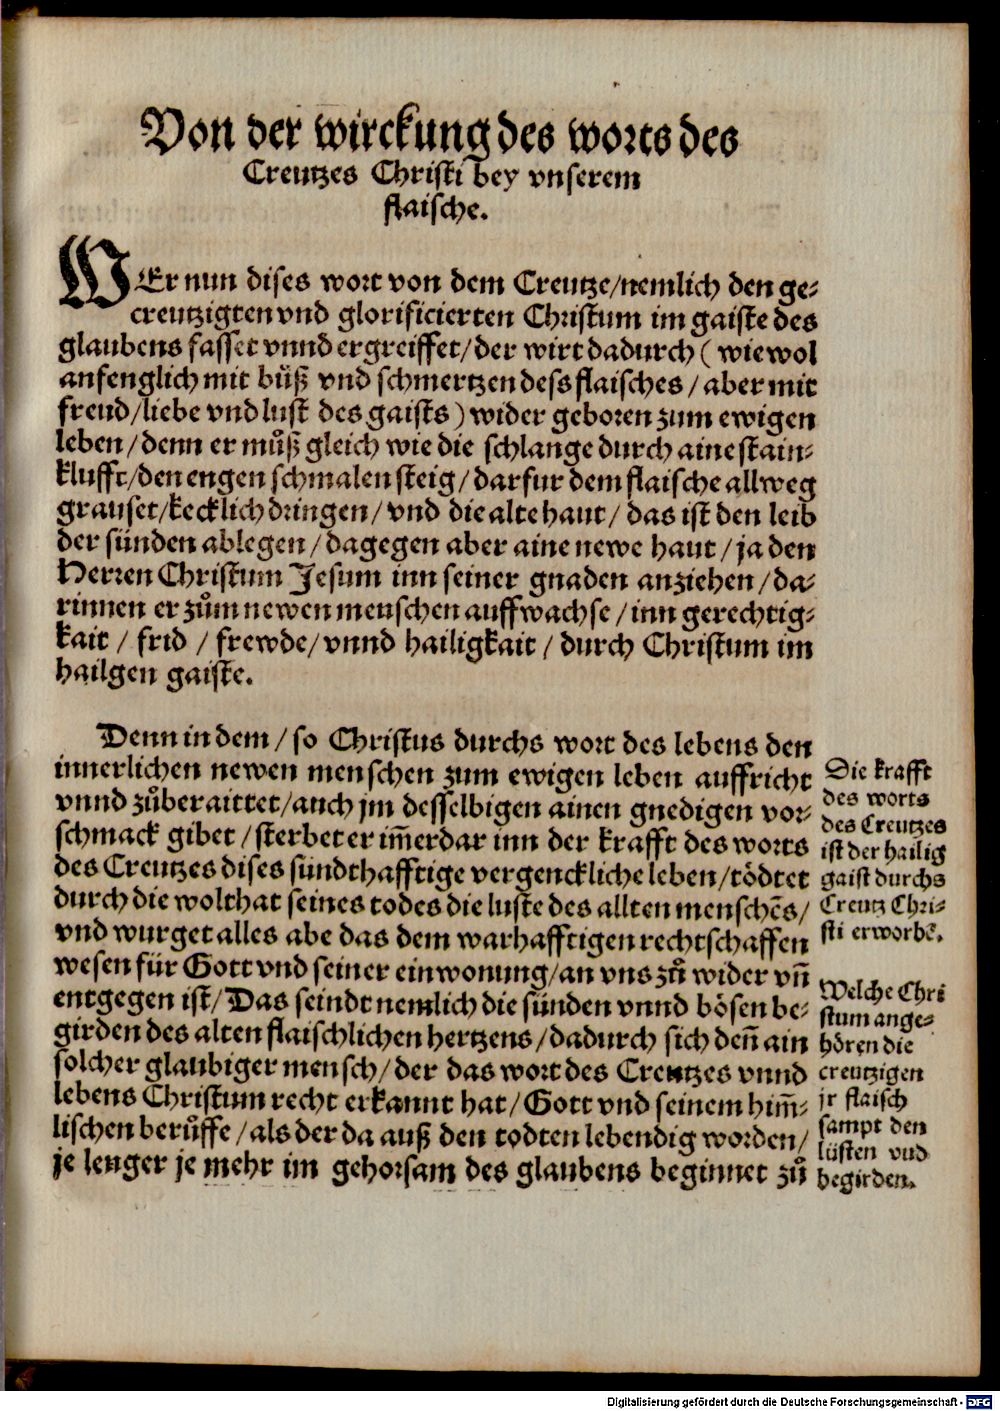 Von der wirckung des worts des
Creutzes Christi bey vnserem
flaische.
WEr nun dises wort von dem Creutze/nemlich den ge-
creutzigten vnd glorificierten Christum im gaiste des
glaubens fasset vnnd ergreiffet/der wirt dadurch (wiewol
anfenglich mit bůß vnd schmertzen dess flaisches/aber mit
freud/liebe vnd lust des gaists) wider geboren zum ewigen
leben/denn er můß gleich wie die schlange durch aine stain-
klufft/den engen schmalen steig/darfur dem flaische allweg
grauset/kecklich dringen/vnd die alte haut/das ist den leib
der sünden ablegen/dagegen aber aine newe haut/ja den
Herren Christum Jesum inn seiner gnaden anziehen/da-
rinnen er zům newen menschen auffwachse/inn gerechtig-
kait/frid/frewde/vnnd hailigkait/durch Christum im
hailgen gaiste.
Denn in dem/so Christus durchs wort des lebens den
innerlichen newen menschen zum ewigen leben auffricht
vnnd zůberaittet/auch jm desselbigen ainen gnedigen vor-
schmack gibet/sterbet er im̃erdar inn der krafft des worts
des Creutzes dises sündthafftige vergenckliche leben/tödtet
durch die wolthat seines todes die luste des allten menschẽs/
vnd wurget alles abe das dem warhafftigen rechtschaffen
wesen für Gott vnd seiner einwonung/an vns zů wider vñ
entgegen ist/Das seindt nemlich die sünden vnnd bösen be-
girden des alten flaischlichen hertzens/dadurch sich deñ ain
solcher glaubiger mensch/der das wort des Creutzes vnnd
lebens Christum recht erkannt hat/Gott vnd seinem him̃-
lischen berůffe/als der da auß den todten lebendig worden/
je lenger je mehr im gehorsam des glaubens beginnet zů
Die krafft
des worts
des Creutzes
ist der hailig
gaist durchs
Creutz Chri-
sti erworbẽ.
Welche Chri
stum ange-
hören die
creutzigen
jr flaisch
sampt den
lüsten vnd
begirden.
Digitalisierung gefördert durch die Deutsche Forschungsgemeinschaft - DFG